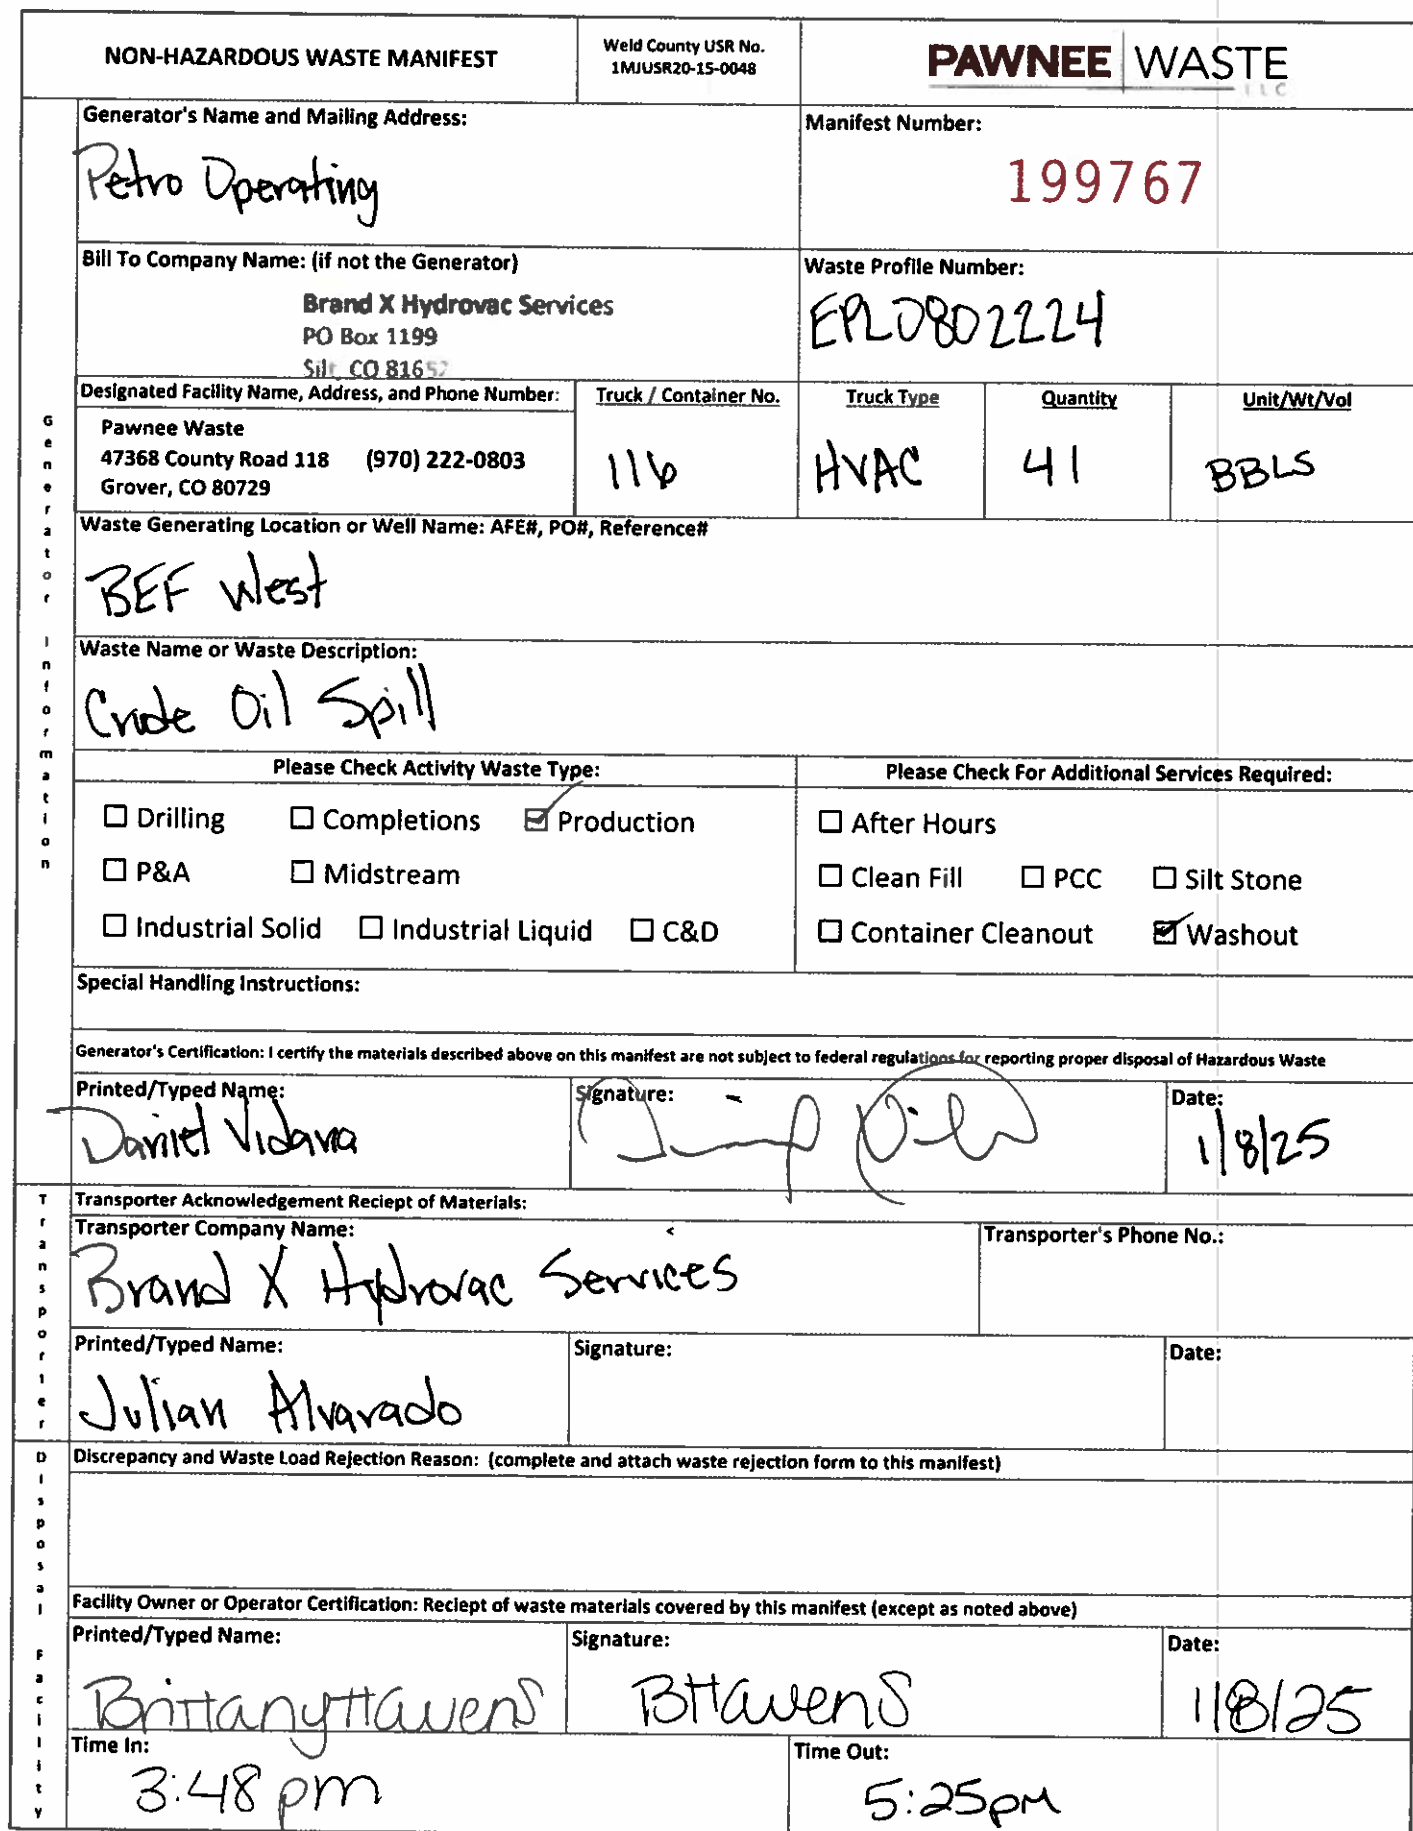 NON-HAZARDOUS WASTE MANIFEST
Weld County USR No.
1MJUSR20-15-0048
PAWNEE WASTE
LLC
Generator's Name and Mailing Address:
Petro Operating
Manifest Number:
199767
Bill To Company Name: (if not the Generator)
Brand X Hydrovac Services
PO Box 1199
Silt, CO 81652
Waste Profile Number:
EPLO802224
Designated Facility Name, Address, and Phone Number:
Pawnee Waste
47368 County Road 118 (970) 222-0803
Grover, CO 80729
Truck / Container No.
116
Truck Type
HVAC
Quantity
41
Unit/Wt/Vol
BBLS
Generator Information
Waste Generating Location or Well Name: AFE#, PO#, Reference#
BEF West
Waste Name or Waste Description:
Crude Oil Spill
Please Check Activity Waste Type:
☐ Drilling ☐ Completions ☑ Production
☐ P&A ☐ Midstream
☐ Industrial Solid ☐ Industrial Liquid ☐ C&D
Please Check For Additional Services Required:
☐ After Hours
☐ Clean Fill ☐ PCC ☐ Silt Stone
☐ Container Cleanout ☑ Washout
Special Handling Instructions:
Generator's Certification: I certify the materials described above on this manifest are not subject to federal regulations for reporting proper disposal of Hazardous Waste
Printed/Typed Name:
Daniel Vidana
Signature:
Date:
1/8/25
Transporter
Transporter Acknowledgement Reciept of Materials:
Transporter Company Name:
Brand X Hydrovac Services
Transporter's Phone No.:
Printed/Typed Name:
Julian Alvarado
Signature:
Date:
Disposal Facility
Discrepancy and Waste Load Rejection Reason: (complete and attach waste rejection form to this manifest)
Facility Owner or Operator Certification: Reciept of waste materials covered by this manifest (except as noted above)
Printed/Typed Name:
Brittany Havens
Signature:
BHavens
Date:
1/8/25
Time In:
3:48 pm
Time Out:
5:25pm